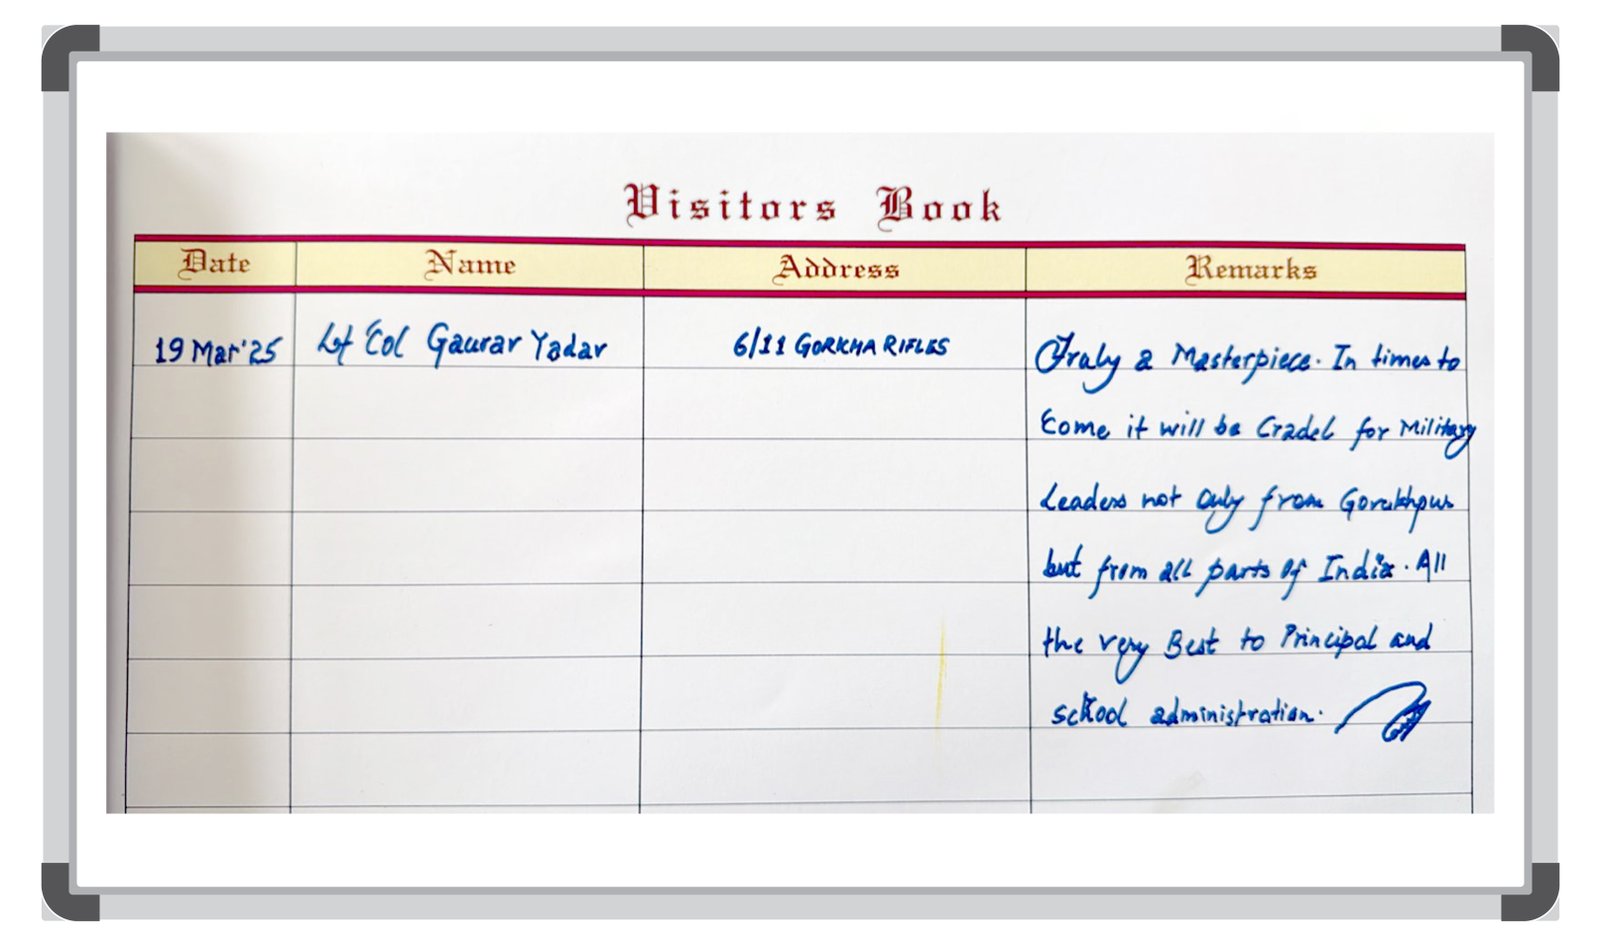 Visitors Book
Date Name Address Remarks
19 Mar'25 Lt Col Gaurav Yadav 6/11 GORKHA RIFLES Truly a Masterpiece. In times to
Come it will be Cradel for Military
Leaders not Only from Gorakhpur
but from all parts of India. All
the very Best to Principal and
school administration.